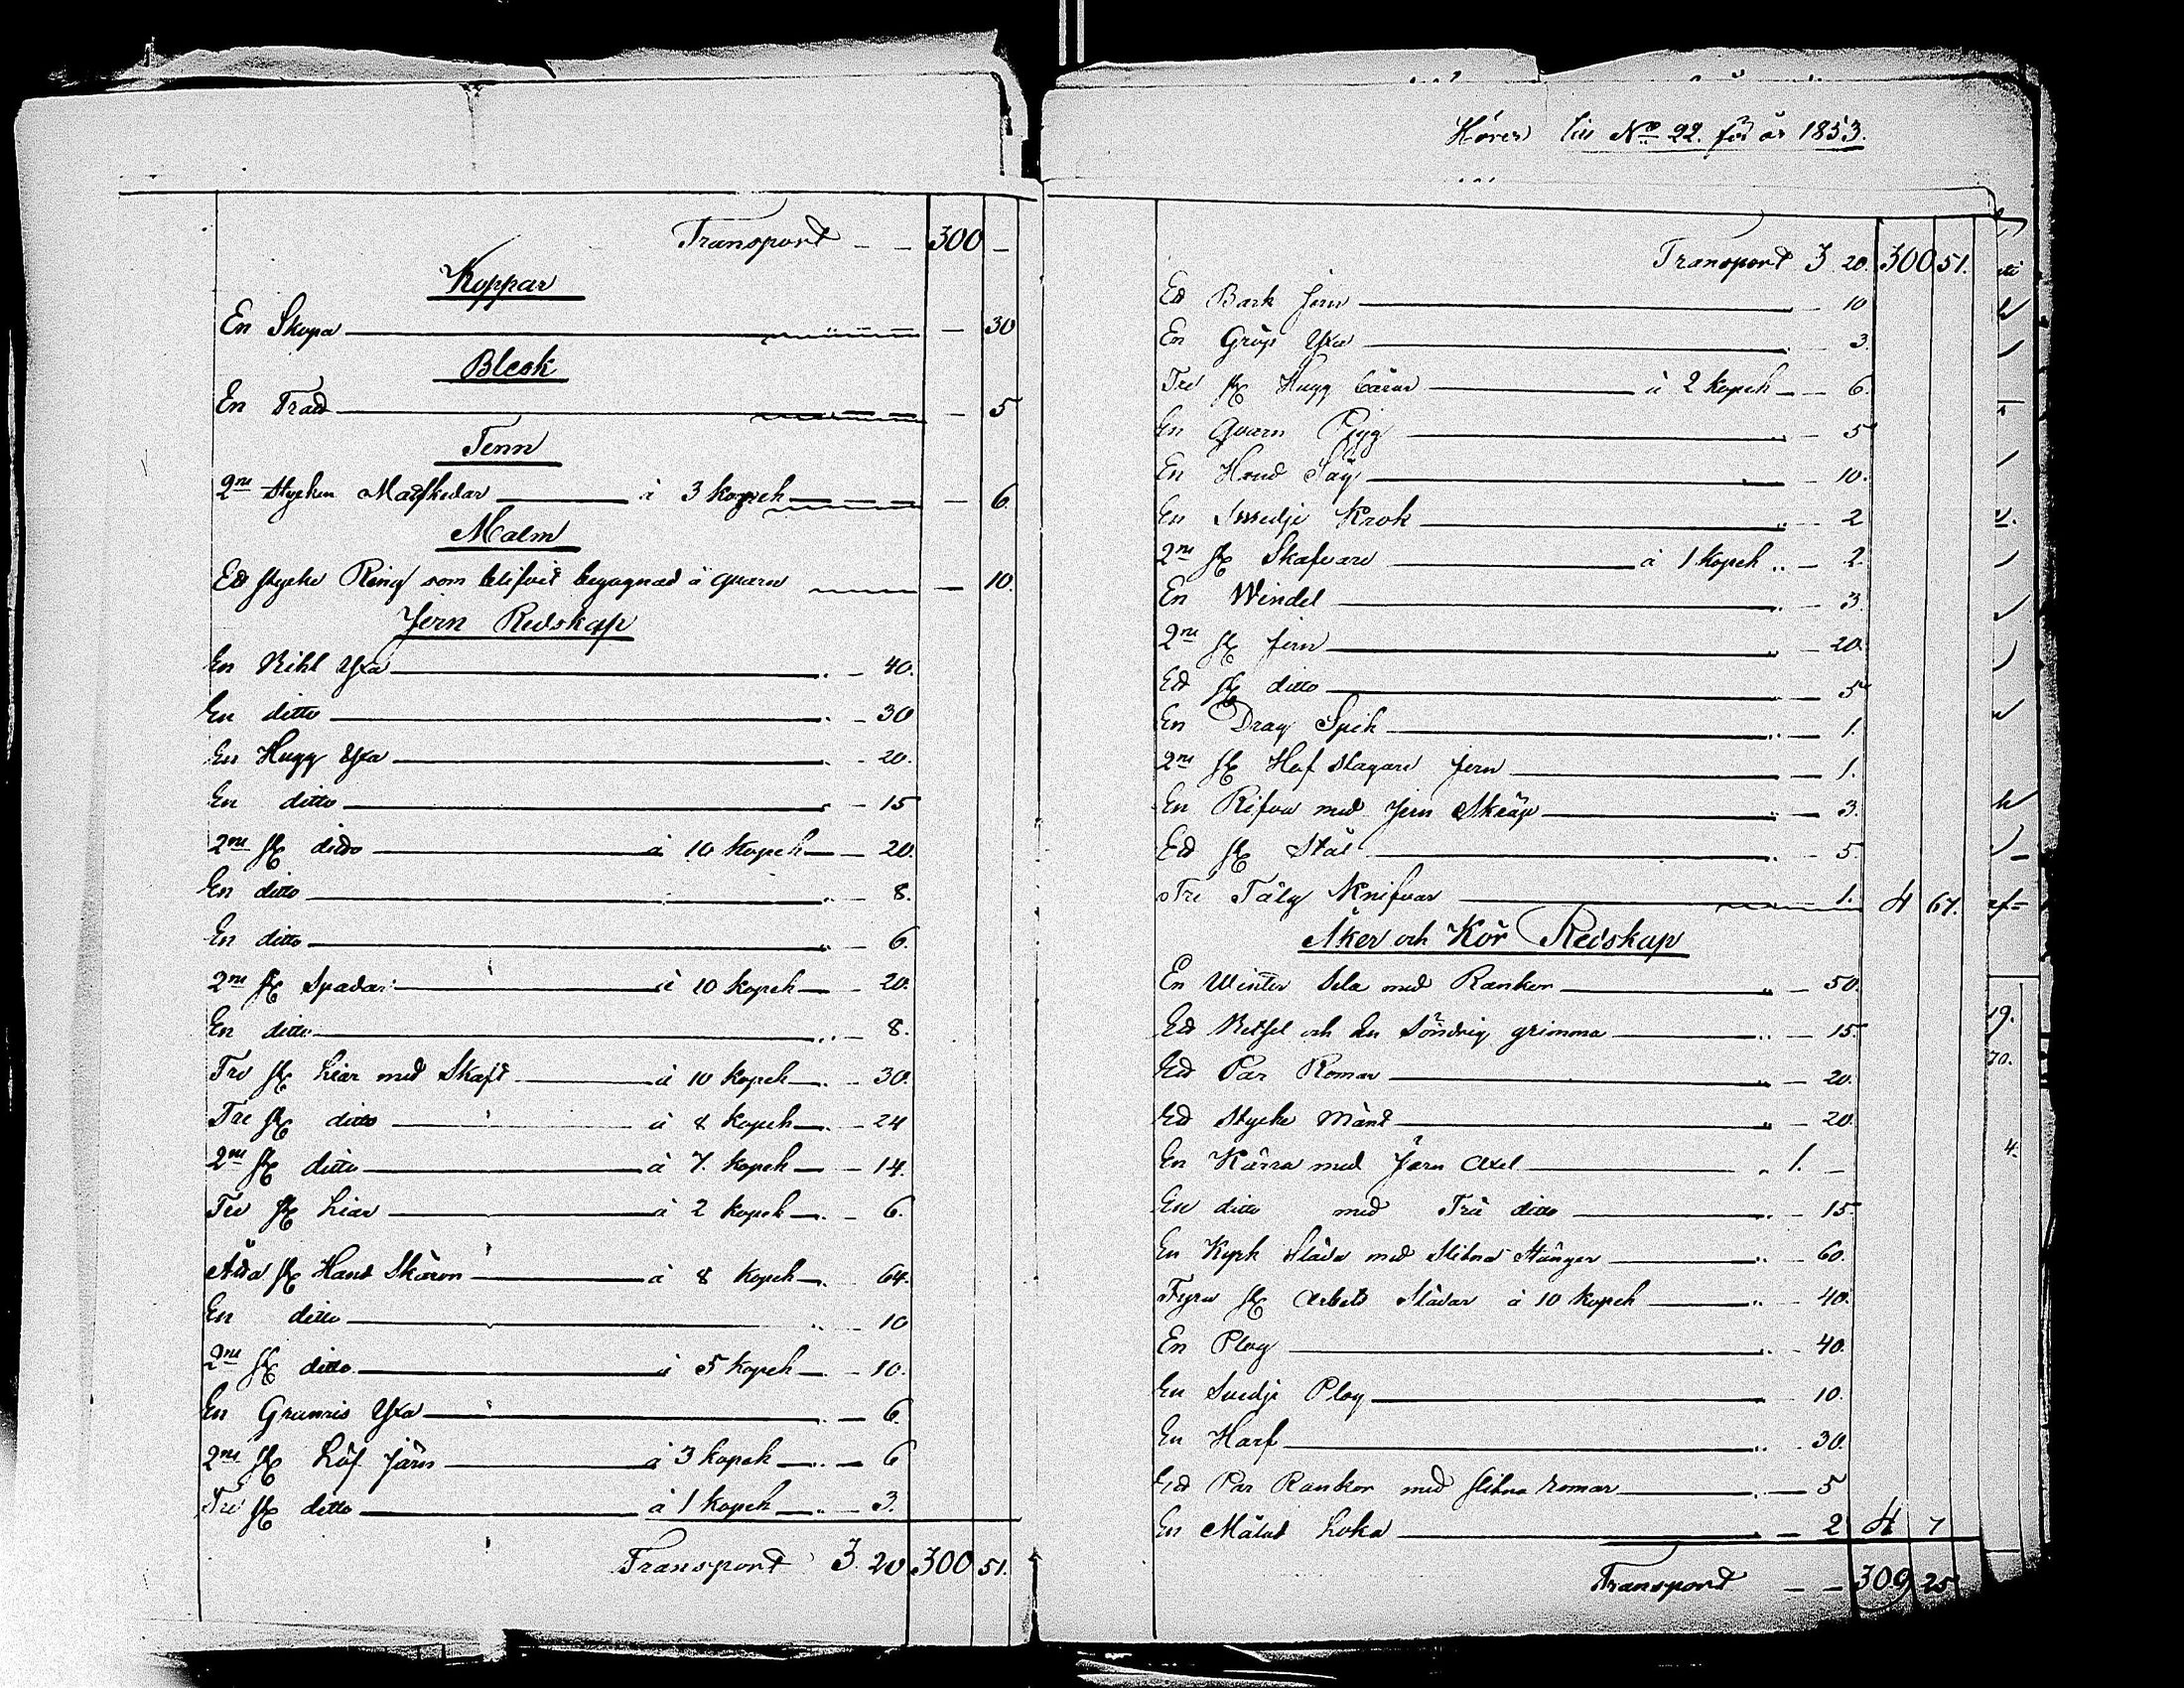 Transport - - 300 -
Koppar
En Skopa - 30
Bleck
En Tratt - 5
Tenn
2ne stycken Matskedar à 3 kopek - 6.
Malm
Ett stycke Ring som blifvit begagnad i quarn - 10.
Jern Redskap
En Bihl Yxa 40.
En ditto 30
En Hugg Yxa 20.
En ditto 15
2ne st ditto à 10 kopek 20.
En ditto 8.
En ditto 6.
2ne st Spadar à 10 kopek 20.
En ditto 8.
Tre st Liar med Skaft à 10 kopek 30.
Tre st ditto à 8 kopek 24
2ne st ditto à 7 kopek 14.
Tre st Liar à 2 kopek 6.
Åtta st Hand Skäror à 8 kopek 64.
En ditto 10
2ne st ditto à 5 kopek 10.
En Granris Yxa 6.
2ne st Löf Järn à 3 kopek 6
Tre st ditto à 1 kopek 3.
Transport 3. 20 300 51.
Hörer till No 22. för år 1853.
Transport 3 20. 300 51.
Ett Bark Jern 10
En Gröp Yxa 3.
Tre st Hugg à 2 kopek 6.
En Quarn Pigg 5
En Hand Såg 10.
En Smedje Krok 2
2ne st Skafvare à 1 kopek 2.
En Windel 3.
2ne st Jern 20.
Ett st ditto 5
En Drag Spik 1.
2ne st Hof slagare Jern 1.
En Rifva med Jern Skråp 3.
Ett st Stål 5.
Tre Tälg Knifvar 1. 4 67.
Åker och Kör Redskap
En Winter Sela med Rankor 50.
Ett Betsel och en Söndrig grimma 15.
Ett Par Romar 20.
Ett Stycke 20.
En Kärra med Järn Axel 1. -
En ditto med Trä ditto 15.
En Kyrk Släda med Slitna Stänger 60.
Fyra st Arbets Slädar à 10 kopek 40.
En Plog 40.
En Svedje Plog 10.
En Harf 30.
Ett Par Rankor med slitna romar 5
En Målad Loka 2 4 7
Transport - - 309 25